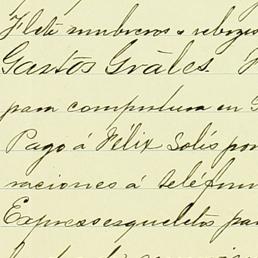 Flete sombreros a rebozos
Gastos Gráles.
para compostura en G
Pago á Félix Solís por
raciones á teléfon
Express esqueletos par